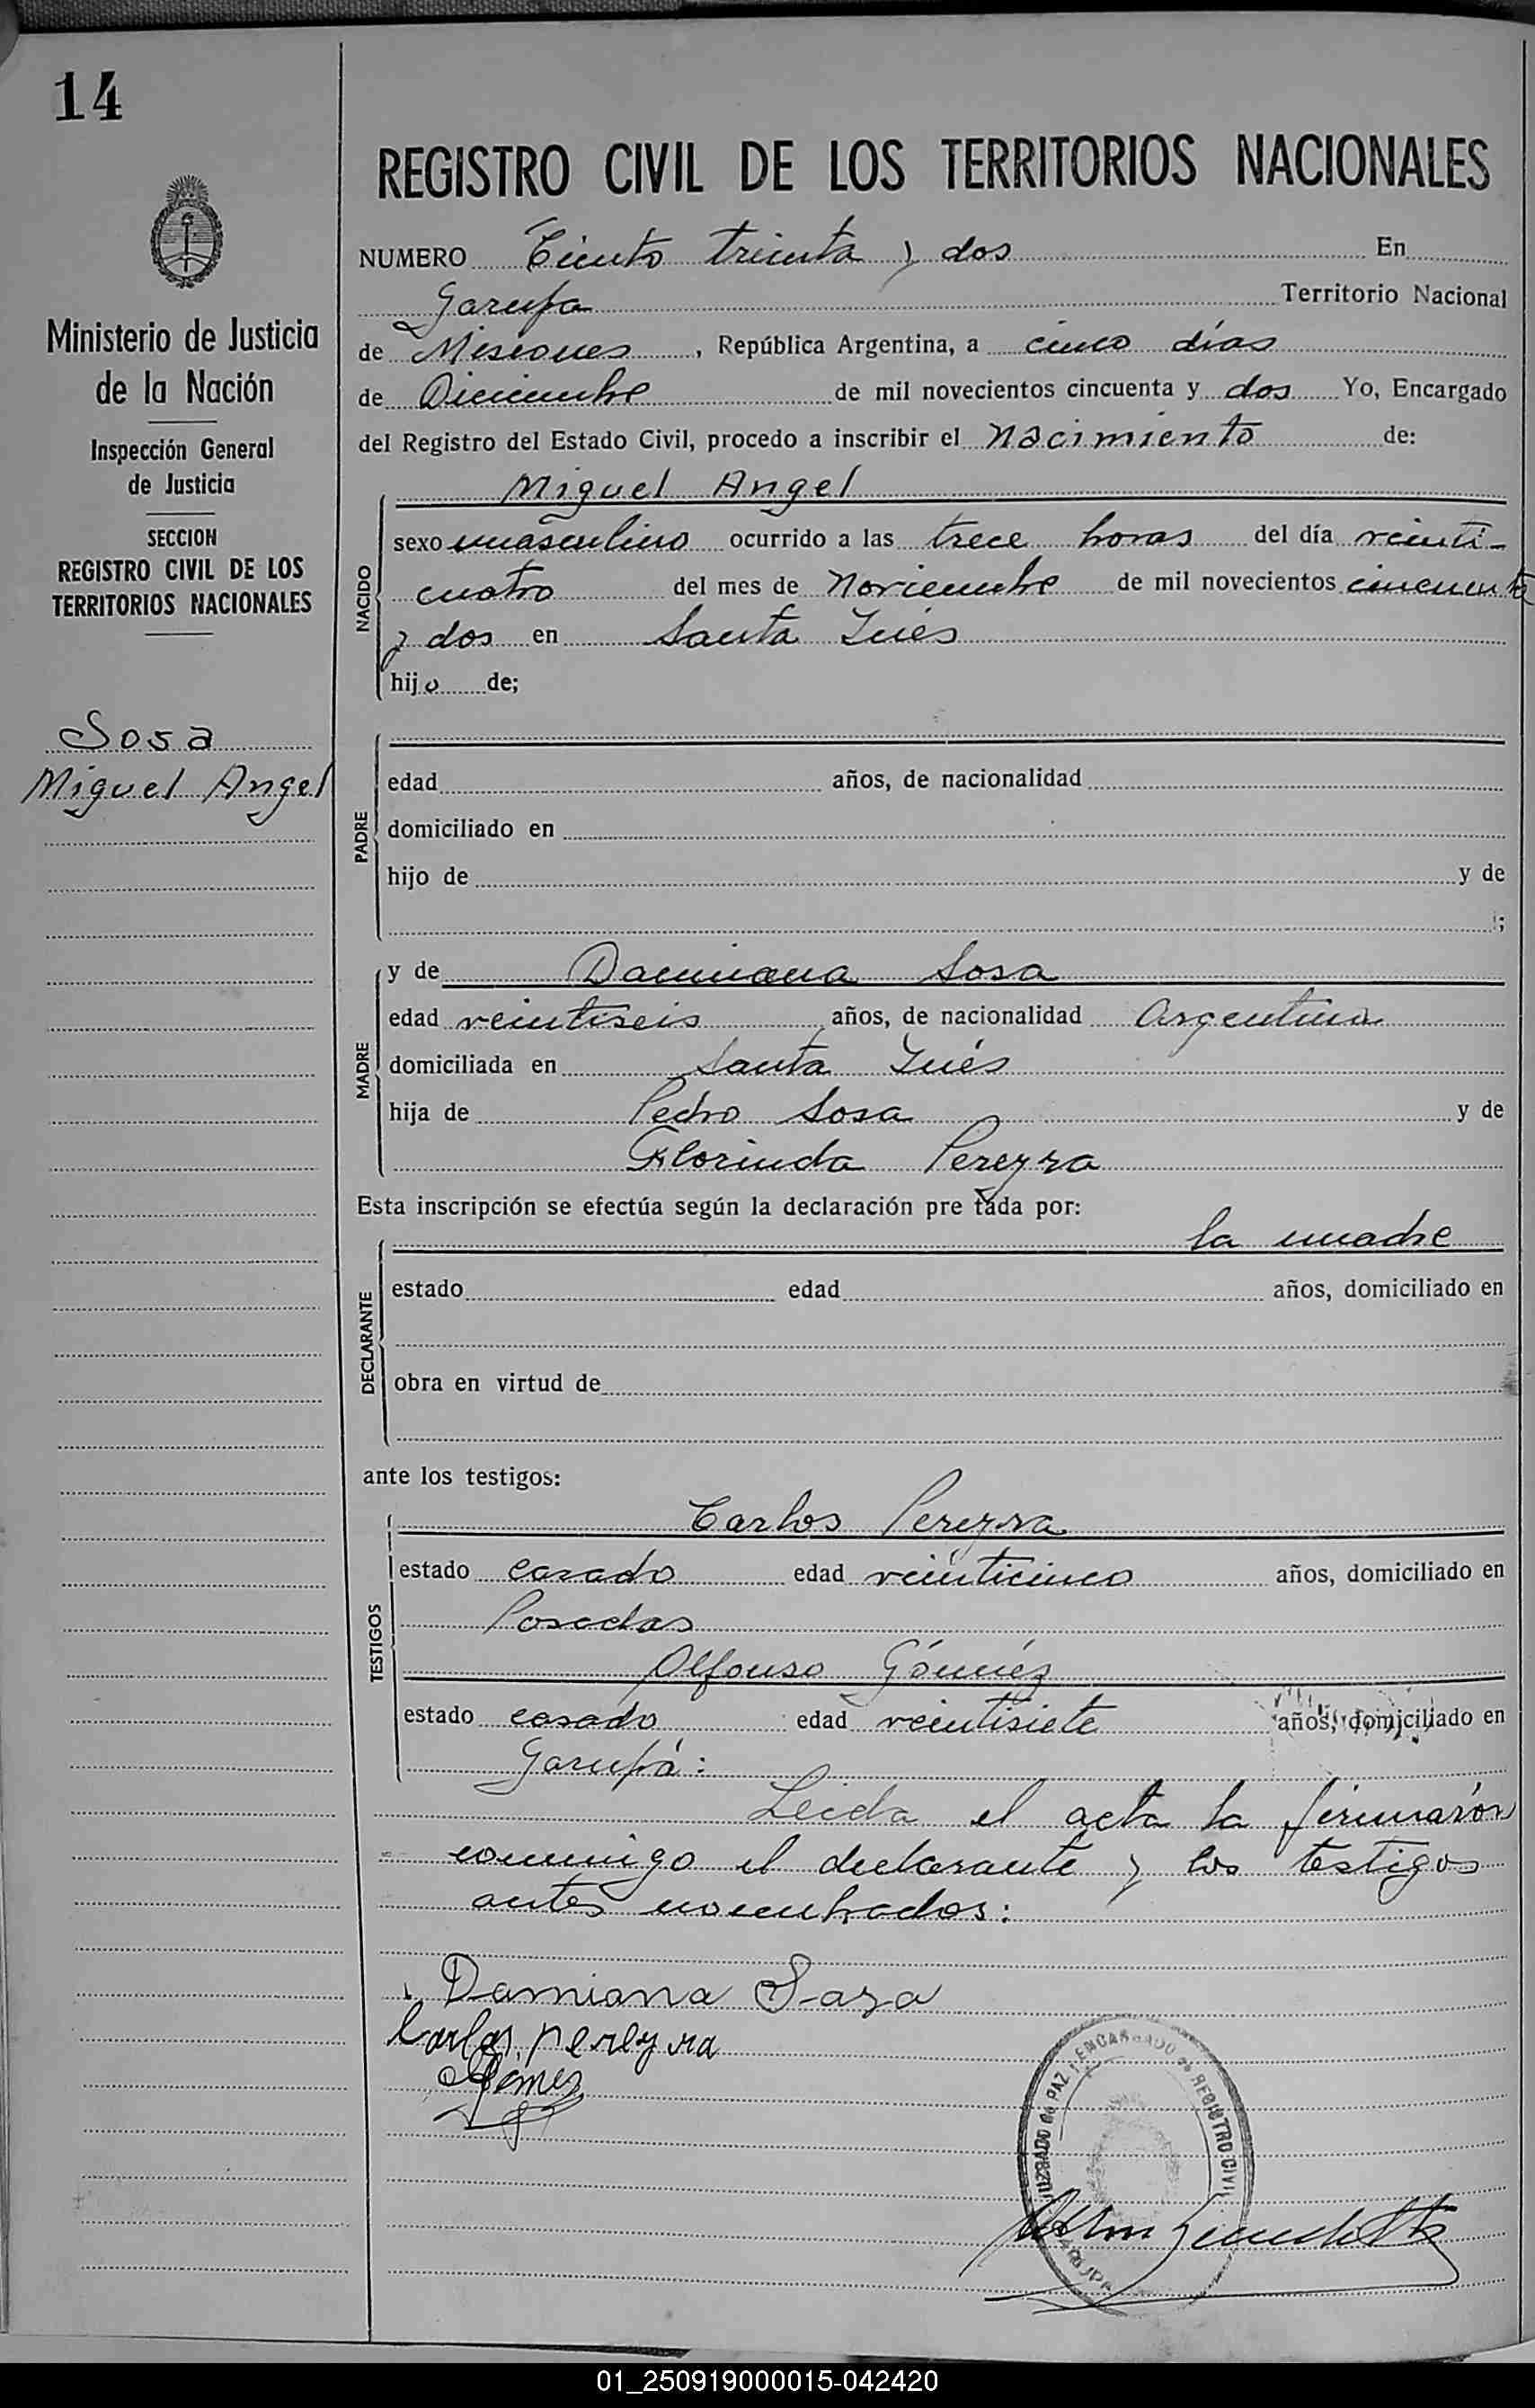 14
REGISTRO CIVIL DE LOS TERRITORIOS NACIONALES
NUMERO Ciento treinta y dos En
Garupa Territorio Nacional
de Misiones, República Argentina, a cinco días
de Diciembre de mil novecientos cincuenta y dos Yo, Encargado
del Registro del Estado Civil, procedo a inscribir el Nacimiento de:
Ministerio de Justicia
de la Nación
Inspección General
de Justicia
SECCION
REGISTRO CIVIL DE LOS
TERRITORIOS NACIONALES
Sosa
Miguel Angel
NACIDO
Miguel Angel
sexo masculino ocurrido a las trece horas del día veinti-
cuatro del mes de Noviembre de mil novecientos cincuenta
y dos en Santa Inés
hijo de;
PADRE
edad años, de nacionalidad
domiciliado en
hijo de y de
;
MADRE
y de Damiana Sosa
edad veintiseis años, de nacionalidad Argentina
domiciliada en Santa Inés
hija de Pedro Sosa y de
Florinda Pereyra
Esta inscripción se efectúa según la declaración pre tada por:
la madre
DECLARANTE
estado edad años, domiciliado en
obra en virtud de
ante los testigos:
TESTIGOS
Carlos Pereyra
estado casado edad veinticinco años, domiciliado en
Posadas
Alfonso Gómez
estado casado edad veintisiete años, domiciliado en
Garupá:
Leida el acta la firmarón
conmigo el declarante y los testigos
antes nombrados:
Damiana Sosa
Carlos Pereyra
AGómez
JUZGADO DE PAZ Y ENCARGADO DE REGISTRO CIVIL
GARUPA
01_250919000015-042420